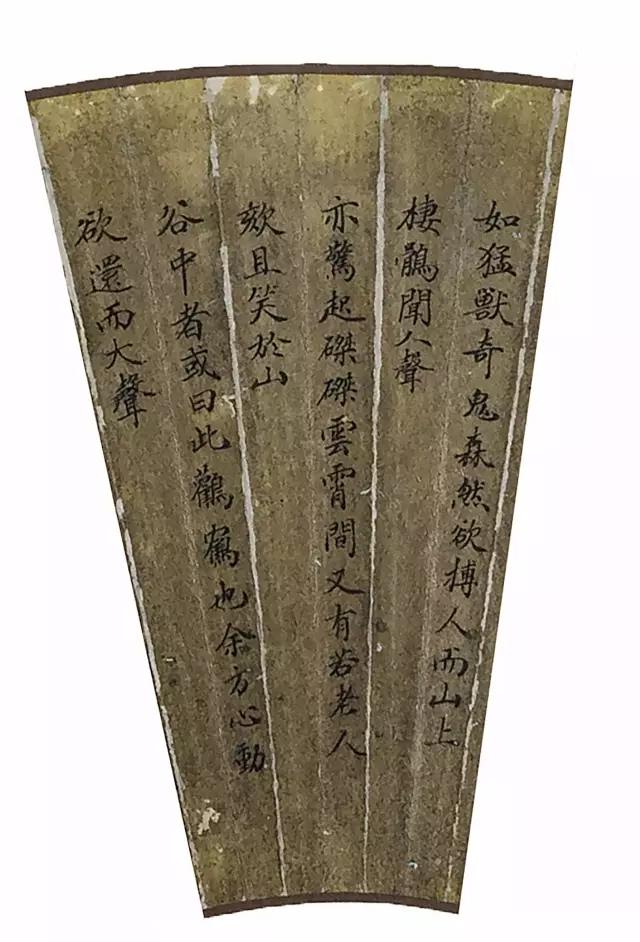 如猛獸奇鬼森然欲搏人而山上
棲鶻聞人聲
亦驚起磔磔雲霄間又有若老人
欬且笑於山
谷中者或曰此鸛鶴也余方心動
欲還而大聲